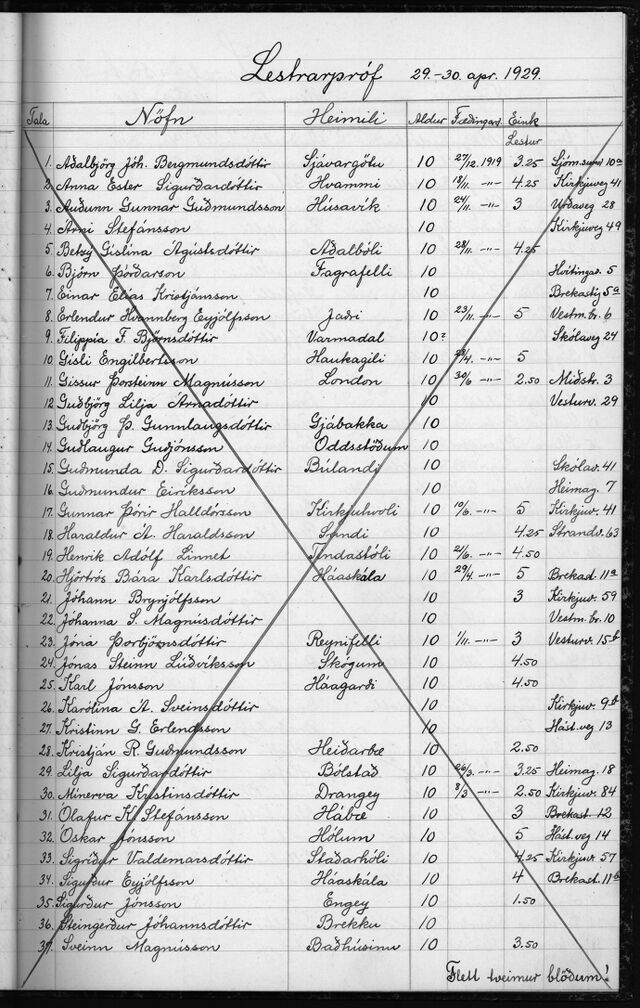 Lestrarpróf 29.-30. apr. 1929.
Tala Nöfn Heimili Aldur Fæðingard. Eink Lestur
1. Aðalbjörg Jóh. Bergmundsdóttir Sjávargötu 10 27/12. 1919 3.25 Sjóm.sund 10a
2. Anna Ester Sigurðardóttir Hvammi 10 18/11. -"- 4.25 Kirkjuveg 41
3. Auðunn Gunnar Guðmundsson Húsavík 10 24/11. -"- 3 Urðaveg 28
4. Árni Stefánsson 10 Kirkjuveg 49
5. Betzy Gíslína Ágústsdóttir Aðalbóli 10 28/11. -"- 4.25
6. Björn Þórðarson Fagrafelli 10 Hvítingav. 5
7. Einar Elías Kristjánsson 10 Brekastíg 5a
8. Erlendur Hvannberg Eyjólfsson Jaðri 10 23/11. -"- 5 Vestm.br. 6
9. Filippía F. Björnsdóttir Varmadal 10? Skólaveg 24
10. Gísli Engilbertsson Haukagili 10 /4. -"- 5
11. Gissur Þorsteinn Magnússon London 10 30/6 -"- 2.50 Miðstr. 3
12. Guðbjörg Lilja Árnadóttir 10 Vesturv. 29
13. Guðbjörg Þ. Gunnlaugsdóttir Gjábakka 10
14. Guðlaugur Guðjónsson Oddsstöðum 10
15. Guðmunda D. Sigurðardóttir Búlandi 10 Skólav. 41
16. Guðmundur Eiríksson 10 Heimag. 7
17. Gunnar Þórir Halldórsson Kirkjuhvoli 10 10/6. -"- 5 Kirkjuv. 41
18. Haraldur Á. Haraldsson Sandi 10 4.25 Strandv. 63
19. Henrik Adólf Linnet Tindastóli 10 2/6. -"- 4.50
20. Hjörtrós Bára Karlsdóttir Háaskála 10 29/4. -"- 5 Brekast. 11a
21. Jóhann Brynjólfsson 10 3 Kirkjuv. 59
22. Jóhanna S. Magnúsdóttir 10 Vestm.br. 10
23. Jóna Þorbjörnsdóttir Reynifelli 10 1/11. -"- 3 Vesturv. 15b
24. Jónas Steinn Lúðvíksson Skógum 10 4.50
25. Karl Jónsson Háagarði 10 4.50
26. Karólína A. Sveinsdóttir 10 Kirkjuv. 9b
27. Kristinn G. Erlendsson 10 Hást.veg 13
28. Kristján R. Guðmundsson Heiðarbæ 10 2.50
29. Lilja Sigurðardóttir Bólstað 10 26/3. -"- 3.25 Heimag. 18
30. Minerva Kristinsdóttir Drangey 10 8/3 -"- 2.50 Kirkjuv. 84
31. Ólafur K. Stefánsson Hábæ 10 3 Brekast. 12
32. Óskar Jónsson Hólum 10 5 Hást.veg 14
33. Sigríður Valdemarsdóttir Staðarhóli 10 4.25 Kirkjuv. 57
34. Sigurður Eyjólfsson Háaskála 10 4 Brekast. 11b
35. Sigurður Jónsson Engey 10 1.50
36. Steingerður Jóhannsdóttir Brekku 10
37. Sveinn Magnússon Baðhúsinu 10 3.50
Flett tveimur blöðum!